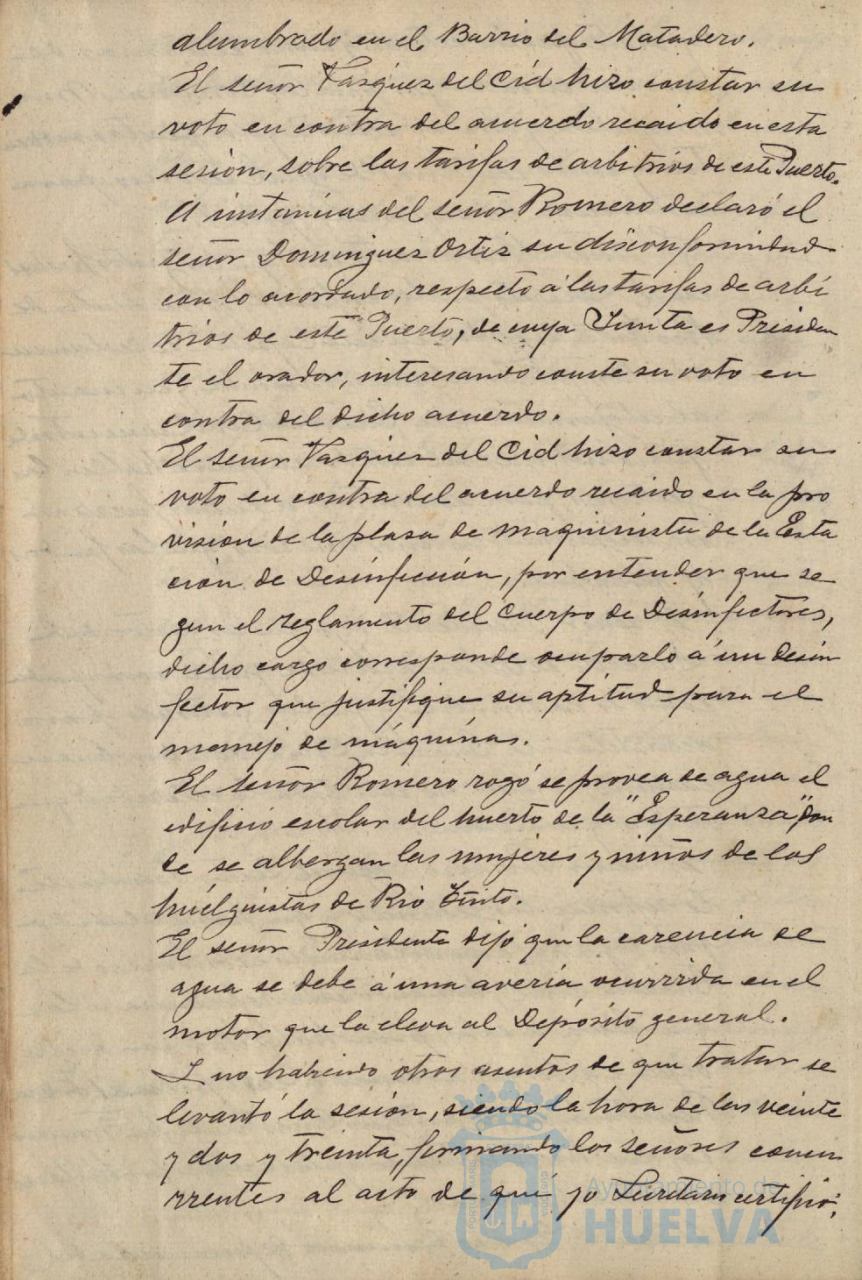 alumbrado en el Barrio del Matadero.
El señor Vazquez del Cid hizo constar su
voto en contra del acuerdo recaido en esta
sesion, sobre las tarifas de arbitrios de este Puerto.
A instancias del señor Romero declaró el
señor Dominguez Ortiz su disconformidad
con lo acordado, respecto á las tarifas de arbi
trios de este Puerto, de cuya Junta es Presiden
te el orador, interesando conste su voto en
contra del dicho acuerdo.
El señor Vazquez del Cid hizo constar su
voto en contra del acuerdo recaido en la pro
visión de la plaza de maquinista de la Esta
ción de Desinfección, por entender que se
gun el reglamento del Cuerpo de Desinfectores,
dicho cargo corresponde ocuparlo á un desin
fector que justifique su aptitud para el
manejo de máquinas.
El señor Romero rogó se provea de agua el
edificio escolar del huerto de la "Esperanza" don
de se albergan las mujeres y niños de los
huélguistas de Rio Tinto.
El señor Presidente dijo que la carencia de
agua se debe á una avería ocurrida en el
motor que la eleva al Depósito general.
Y no habiendo otros asuntos de que tratar se
levantó la sesión, siendo la hora de las veinte
y dos y treinta, firmando los señores concu
rrentes al acto de que yo Secretario certifico.
Ayuntamiento de
HUELVA